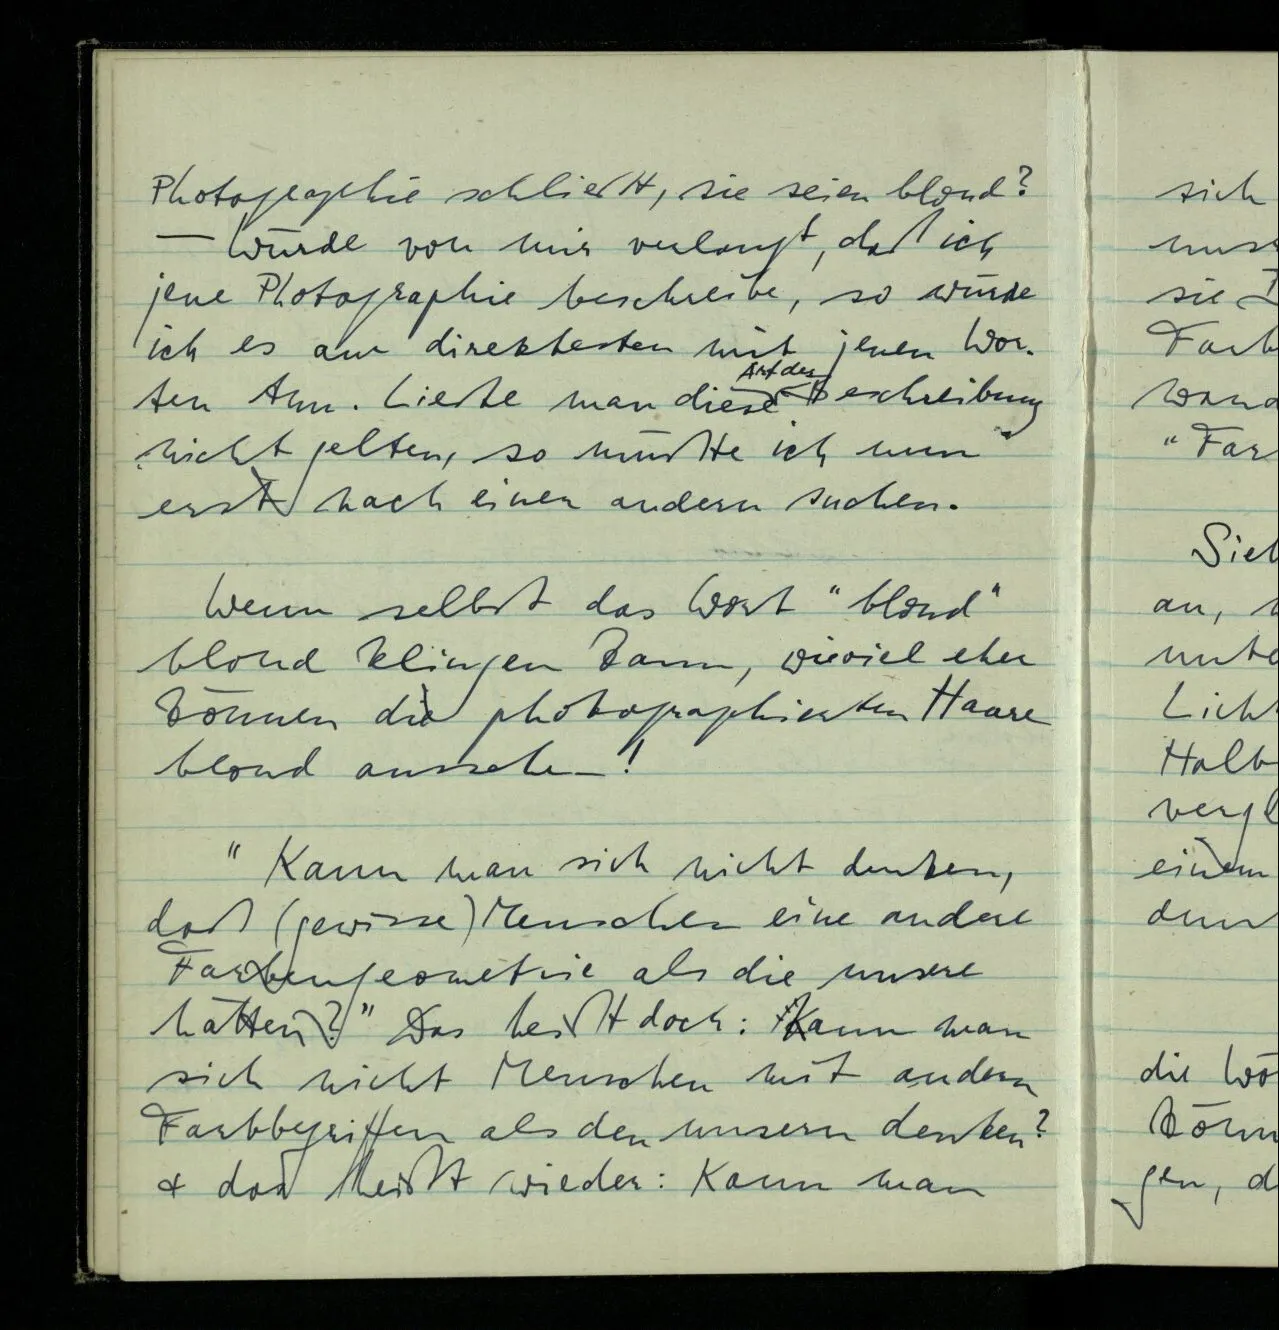 Photographie schließt, sie seien blond?
— Würde von mir verlangt, daß ich
jene Photographie beschreibe, so würde
ich es am direktesten mit jenen Wor-
ten tun. Ließe man diese Art der Beschreibung
nicht gelten, so müßte ich nun
erst nach einer andern suchen.
Wenn selbst das Wort "blond"
blond klingen kann, wieviel eher
können die photographierten Haare
blond aussehen!
"Kann man sich nicht denken,
daß (gewisse) Menschen eine andere
Farbengeometrie als die unsere
hätten?" Das heißt doch: Kann man
sich nicht Menschen mit andern
Farbbegriffen als den unsern denken?
& das heißt wieder: Kann man
sich
sie
an,
einem
"Far
Sieh
die Wö
gen, d